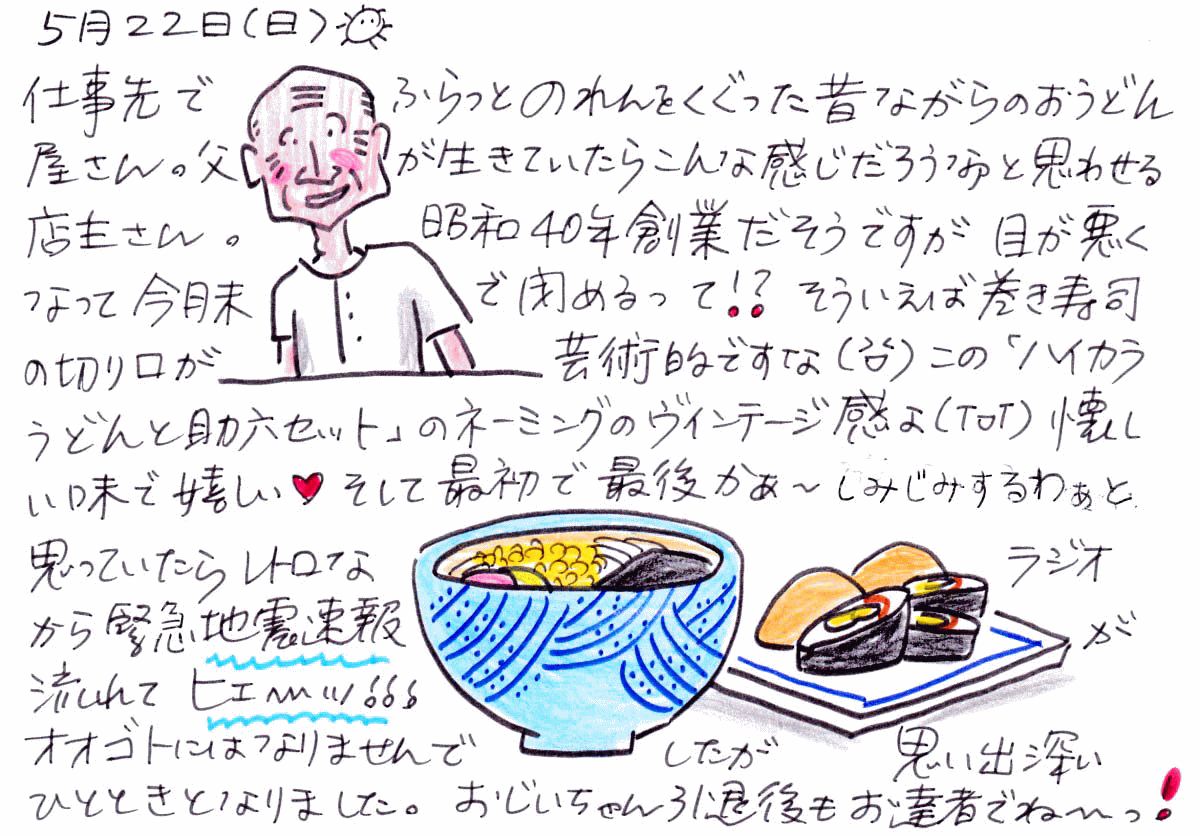 5月22日(日)
仕事先で ふらっとのれんをくぐった昔ながらのおうどん
屋さん。父が生きていたらこんな感じだろうなあと思わせる
店主さん。 昭和40年創業だそうですが 目が悪く
なって今月末で閉めるって!? そういえば巻き寿司
の切り口が 芸術的ですな(谷)この「ハイカラ
うどんと助六セット」のネーミングのヴィンテージ感よ(ToT)懐し
い味で嬉しい♥そして最初で最後かぁ～しみじみするわぁと
思っていたらレトロな ラジオ
から緊急地震速報 が
流れて ヒエ〜〜!!!
オオゴトにはなりませんで したが 思い出深い
ひとときとなりました。おじいちゃん引退後もお達者でね～っ!